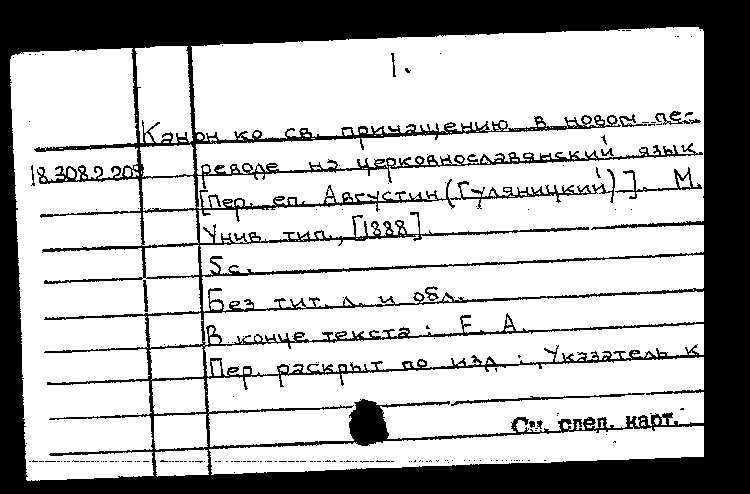 1.
Канон ко св. причащению в новом пе-
18.308.2.209 реводе на церковнославянский язык.
[Пер. еп. Августин (Гуляницкий)]. М.
Унив. тип., [1888].
5с.
Без тит. л. и обл.
В конце текста: Е. А.
Пер. раскрыт по изд.: „Указатель к
См. след. карт.